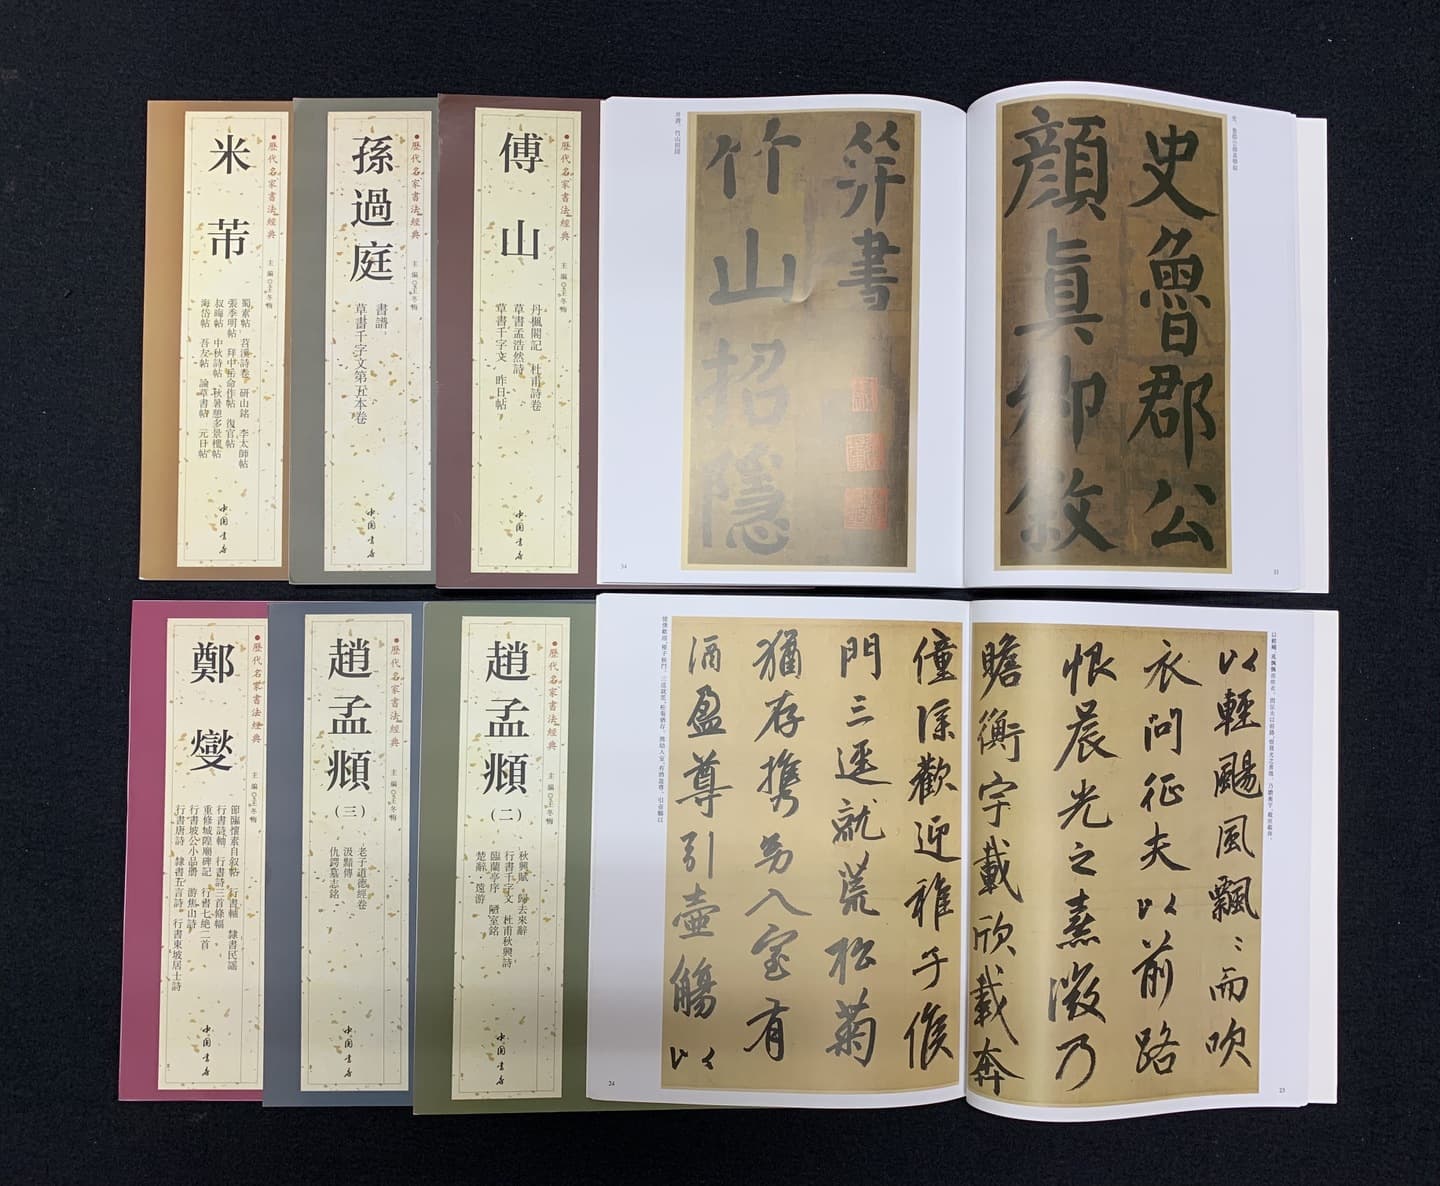 米芾
●歷代名家書法經典
主編◎王冬梅
蜀素帖 苕溪詩卷 研山銘 李太師帖
張季明帖 拜中岳命作帖 復官帖
叔晦帖 中秋詩帖 秋暑憩多景樓帖
海岱帖 吾友帖 論草書帖 元日帖
中国书店
孫過庭
●歷代名家書法經典
主編◎王冬梅
書譜
草書千字文第五本卷
中国书店
傅山
●歷代名家書法經典
主編◎王冬梅
丹楓閣記 杜甫詩卷
草書孟浩然詩
草書千字文 昨日帖
中国书店
史魯郡公
顏真卿敘
33
并書
竹山招隱
并書 竹山招隱
34
鄭燮
●歷代名家書法經典
主編◎王冬梅
節臨懷素自敘帖 行書軸 隸書民謠
行書詩軸 行書詩三首條幅
重修城隍廟碑記 行書七絕二首
行書坡公小品冊 游焦山詩
行書唐詩 隸書五言詩 行書東坡居士詩
中国书店
趙孟頫
(三)
●歷代名家書法經典
主編◎王冬梅
老子道德經卷
汲黯傳
仇鍔墓志銘
中国书店
趙孟頫
(二)
●歷代名家書法經典
主編◎王冬梅
秋興賦 歸去來辭
行書千字文 杜甫秋興詩
臨蘭亭序 陋室銘
楚辭 遠游
中国书店
以輕颺風飄〻而吹
衣問征夫以前路
恨晨光之熹微乃
瞻衡宇載欣載奔
23
僮僕歡迎稚子候
門三逕就荒松菊
猶存攜幼入室有
酒盈尊引壺觴以
24